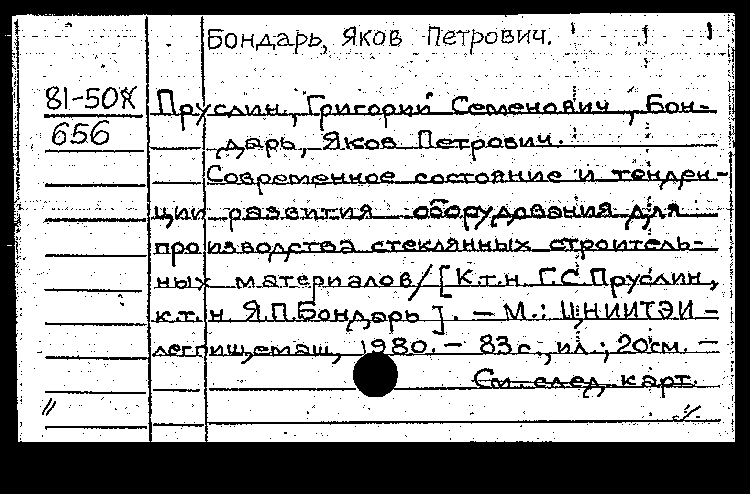 Бондарь, Яков Петрович.
81-50X Пруслин, Григорий Семенович, Бон-
656 дарь, Яков Петрович.
Современное состояние и тенден-
ции развития оборудования для
производства стеклянных строитель-
ных материалов/[К.т.н. Г.С.Пруслин,
к.т.н Я.П.Бондарь]. - М.: ЦНИИТЭИ-
легпищемаш, 1980. - 83 с., ил.; 20 см. -
См. след. карт.